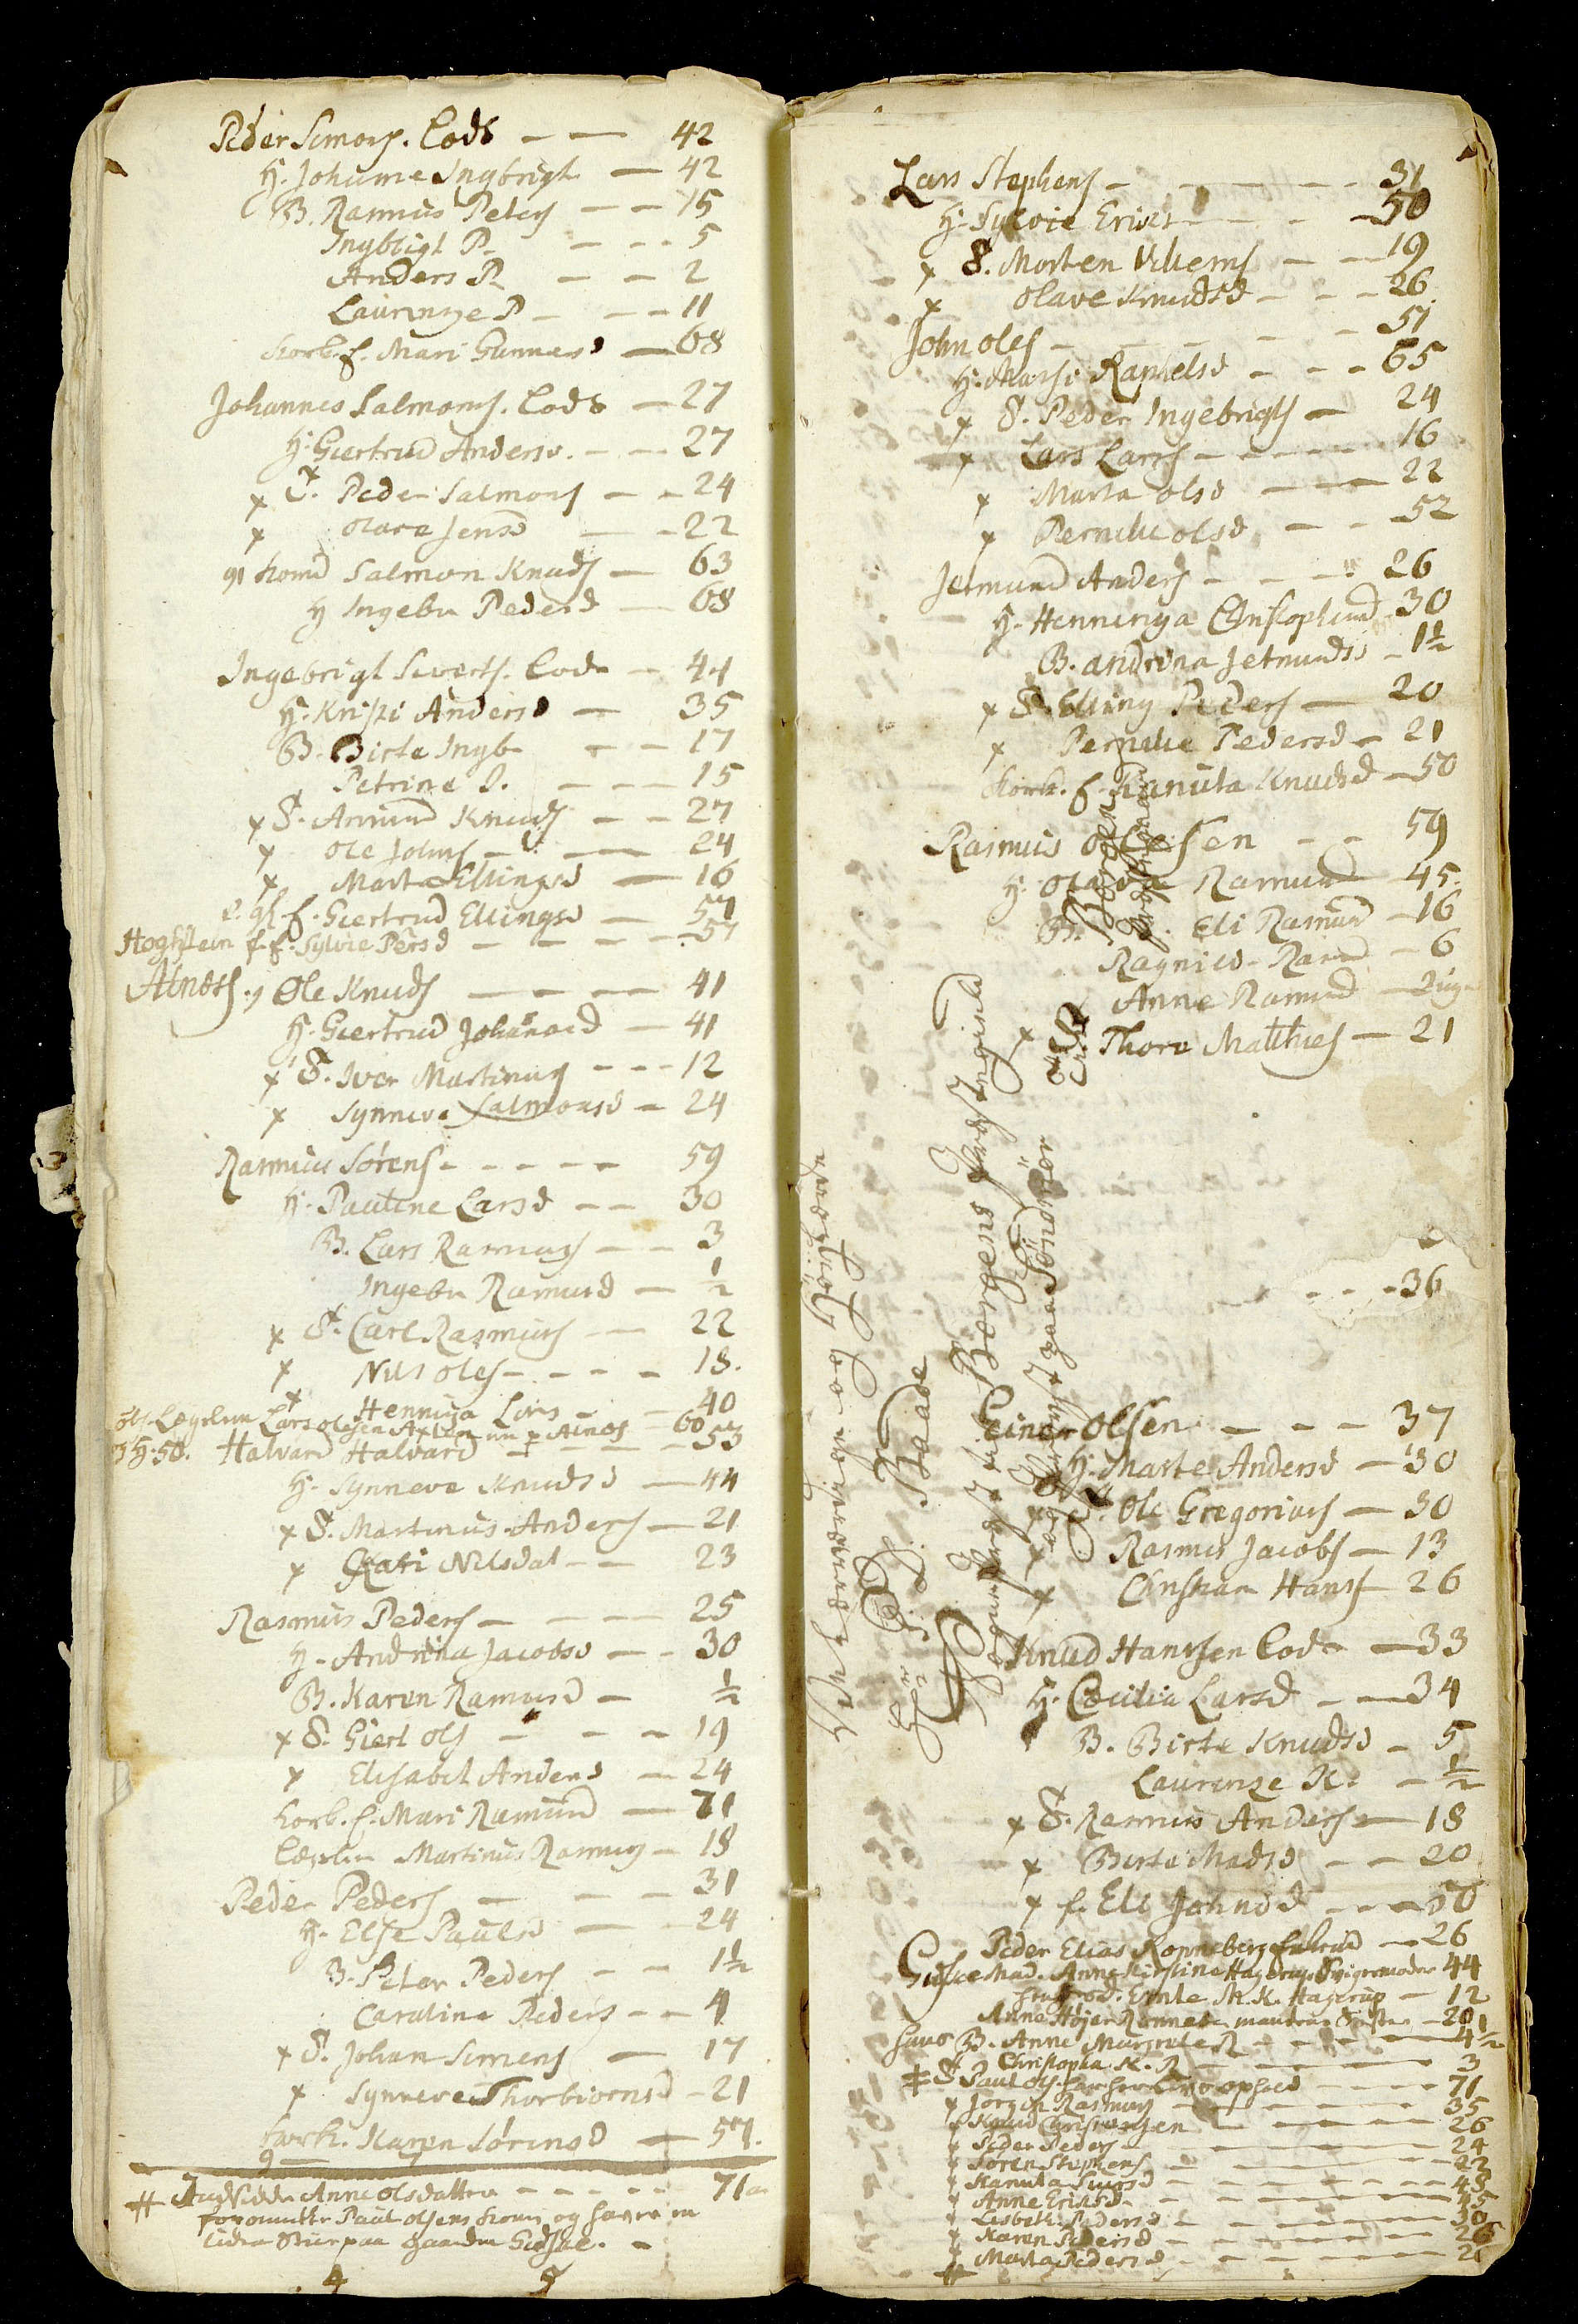 Peder Simons. Lods — — 42
H. Johanne Ingbrigt — 42
B. Rasmus Peters — — 15
Ingbrigt P. — — — 5
Anders P. — — 2
Laurenze P. — — — 11
f. Mari Gunners — 68
Johannes Salmons. Lods — 27
H. Giertrud Andersd. — — 27
x T. Peder Salmons — — 24
x Olava Jensd — — 22
Salmon Knuds — 63
H Ingebor Pedersd — 68
Ingebrigt Siverts. Lods — 44
H. Kristi Andersd — 35
B. Birte Ingb. — — 17
Petrine I. — — — 15
x T. Amund Knuds — — 27
x Ole Johns — — 24
x Marta Ellingsd — 16
f. Giertrud Ellingsd — 57
f. Sylvie Persd — — — — 57
Alnæs Ole Knuds — — — — 41
H. Giertrud Johannesd — 41
x T. Iver Martinus — — — 12
x Synneve Salmonsd — 24
Rasmus Sørens — — — — — 59
H. Pauline Larsd — — 30
B. Lars Rasmus — — 3
Ingebor Rasmusd — ½
x T. Carl Rasmus — — 22
x Nils Oles — — — — 18.
x Henninga Lars — — 40
Lars Olsen — 60
H: 50. Halvard Halvard — — — — 53
H. Synneve Knudsd — 44
x T. Martinus Anders — 21
x Kari Nilsdat — — 23
Rasmus Peders — — — — 25
H. Andrina Jacobsd — — 30
B. Karen Rasmusd — ½
x T. Giert Ols — — — 19
x Elisabet Andersd — 24
f. Mari Rasmusd — 71
Martinus Rasmus — 18
Peder Peders — — — 31
H. Else Paulsd — — 24
B. Peter Peders — — 1½
Caroline Peders — — 4
x T. Johan Simens — 17
x Synneve Thorbiornsd — 21
Karen Sørensd — 57.
Anne Olsdatter — — — — — 71
Paul Olsens og
paa
4 5
Lars Stephens — — — — — 31
H. Sylvie Eriks — — — 50
x T. Morten Vilhems — — 19
x Olave Knudsd — — — 26
John Oles — — — — 51
H. Marthe Raphelsd — — — 65
x T. Peder Ingebrigts — 24
x Lars Larss — — — — — 16
x Marta Olsd — — — 22
x Pernille Olsd — — — 52
Jetmund Anders — — — 26
H. Henninga Christophersd — 30
B. Andrina Jetmundsd — 1½
x T. Elling Peders — 20
x Pernille Pedersd — 21
f. Kanuta Knudsd — 50
Rasmus Olsen — — 59
H. Olava Rasmusd — 45.
B. Eli Rasmusd — 16
Ragnild Rasmd — 6
Anne Rasmusd —
x Thore Mathies — 21
— — — 36
Bergens
Hr P. D. Baade
Sogne Præst til Borgens Præstegield
og Provst paa Söndmör
Einer Olsen — — — 37
H. Marte Andersd — 30
x T. Ole Gregorius — 30
x Rasmus Jacobs — 13
x Christian Hans — 26
Knud Hanssen Lods — 33
H. Cecilia Larsd — — 34
B. Birte Knudsd — 5
Laurenze K. — ½
x T. Rasmus Anders — 18
x Birte Madsd — — 20
x f. Eli Johnsd — — 50
Peder Elias Ronneberg — 26
Giske Mad. Anne Kirstine Hagerup Svigermoder 44
M. K. Hagerup — 12
Anne Højer Ronneb — 20
hans B. Anne Margrete R — — — 4½
Christopha K. R — — — 3
T Paul Ols — — — — 71
x Jørgen Rasmus — — — 35
x Knud Christensen — — — 26
x Peder Peders — — — 24
x Søren Stephens — — — 22
x Kanuta Siversd — — — 48
x Anne Eriksd — — — 45
x Lisbeth Pedersd — — — 30
x Karen Pedersd — — — 26
x Marta Pedersd — — — 21